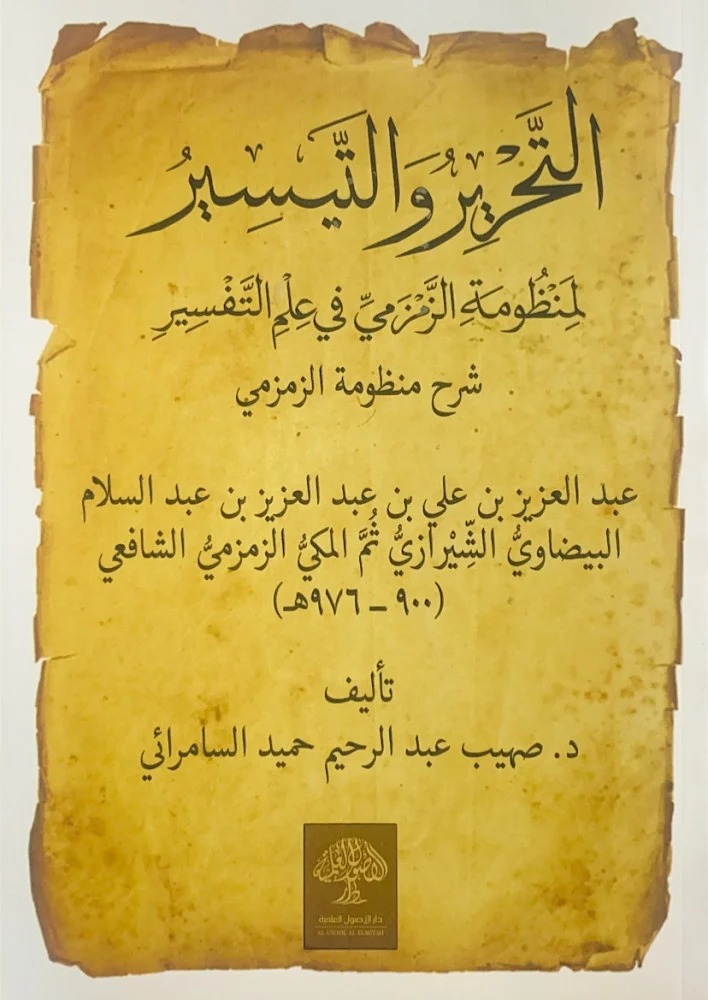 التَّحْرِيْرُ وَالتَّيْسِيْرُ
لِمَنْظُومَةِ الزَّمْزَمِيِّ فِي عِلْمِ التَّفْسِيرِ
شرح منظومة الزمزمي
عبد العزيز بن علي بن عبد العزيز بن عبد السلام
البيضاويُّ الشِّيْرازيُّ ثُمَّ المكيُّ الزمزميُّ الشافعي
(٩٠٠ – ٩٧٦هـ)
تأليف
د. صهيب عبد الرحيم حميد السامرائي
الأصول العلمية
دار
دار الأصول العلمية
AL USOOL AL ELMIYAH